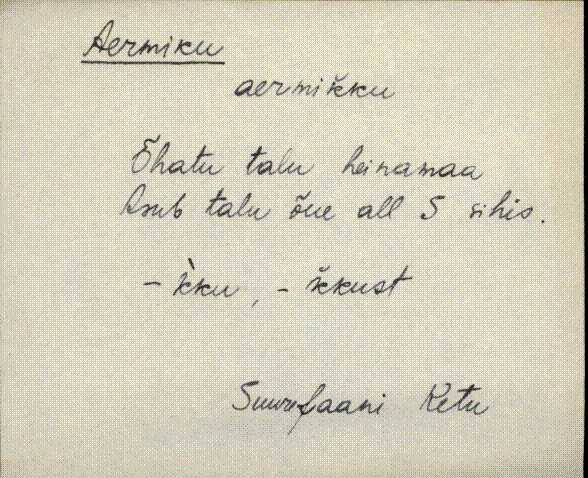 Aermiku
aermik̆ku
Õhatu talu heinamaa
Asub talu õue all S sihis.
- k̀ku, - k̆kust
Suurejaani Ketu